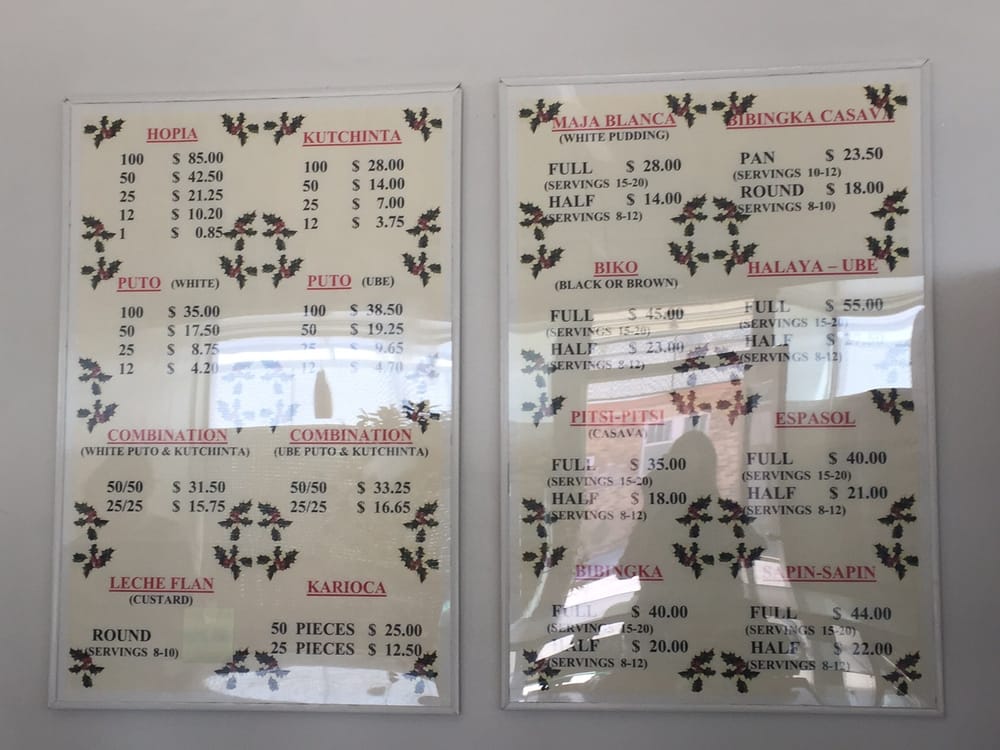 HOPIA
100 $ 85.00
50 $ 42.50
25 $ 21.25
12 $ 10.20
1 $ 0.85
KUTCHINTA
100 $ 28.00
50 $ 14.00
25 $ 7.00
12 $ 3.75
PUTO (WHITE)
100 $ 35.00
50 $ 17.50
25 $ 8.75
12 $ 4.20
PUTO (UBE)
100 $ 38.50
50 $ 19.25
25 $ 9.65
12 $ 4.70
COMBINATION
(WHITE PUTO & KUTCHINTA)
50/50 $ 31.50
25/25 $ 15.75
COMBINATION
(UBE PUTO & KUTCHINTA)
50/50 $ 33.25
25/25 $ 16.65
LECHE FLAN
(CUSTARD)
ROUND
(SERVINGS 8-10)
KARIOCA
50 PIECES $ 25.00
25 PIECES $ 12.50
MAJA BLANCA
(WHITE PUDDING)
FULL $ 28.00
(SERVINGS 15-20)
HALF $ 14.00
(SERVINGS 8-12)
BIBINGKA CASAVA
PAN $ 23.50
(SERVINGS 10-12)
ROUND $ 18.00
(SERVINGS 8-10)
BIKO
(BLACK OR BROWN)
FULL $ 45.00
(SERVINGS 15-20)
HALF $ 23.00
(SERVINGS 8-12)
HALAYA – UBE
FULL $ 55.00
(SERVINGS 15-20)
HALF $
(SERVINGS 8-12)
PITSI-PITSI
(CASAVA)
FULL $ 35.00
(SERVINGS 15-20)
HALF $ 18.00
(SERVINGS 8-12)
ESPASOL
FULL $ 40.00
(SERVINGS 15-20)
HALF $ 21.00
(SERVINGS 8-12)
BIBINGKA
FULL $ 40.00
(SERVINGS 15-20)
HALF $ 20.00
(SERVINGS 8-12)
SAPIN-SAPIN
FULL $ 44.00
(SERVINGS 15-20)
HALF $ 22.00
(SERVINGS 8-12)